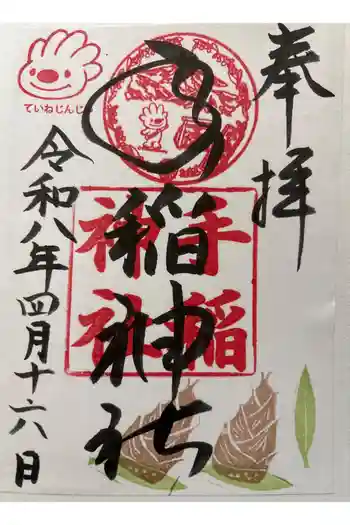 奉拝
手稲神社
手稲
神社
令和八年四月十六日
ていねじんじ